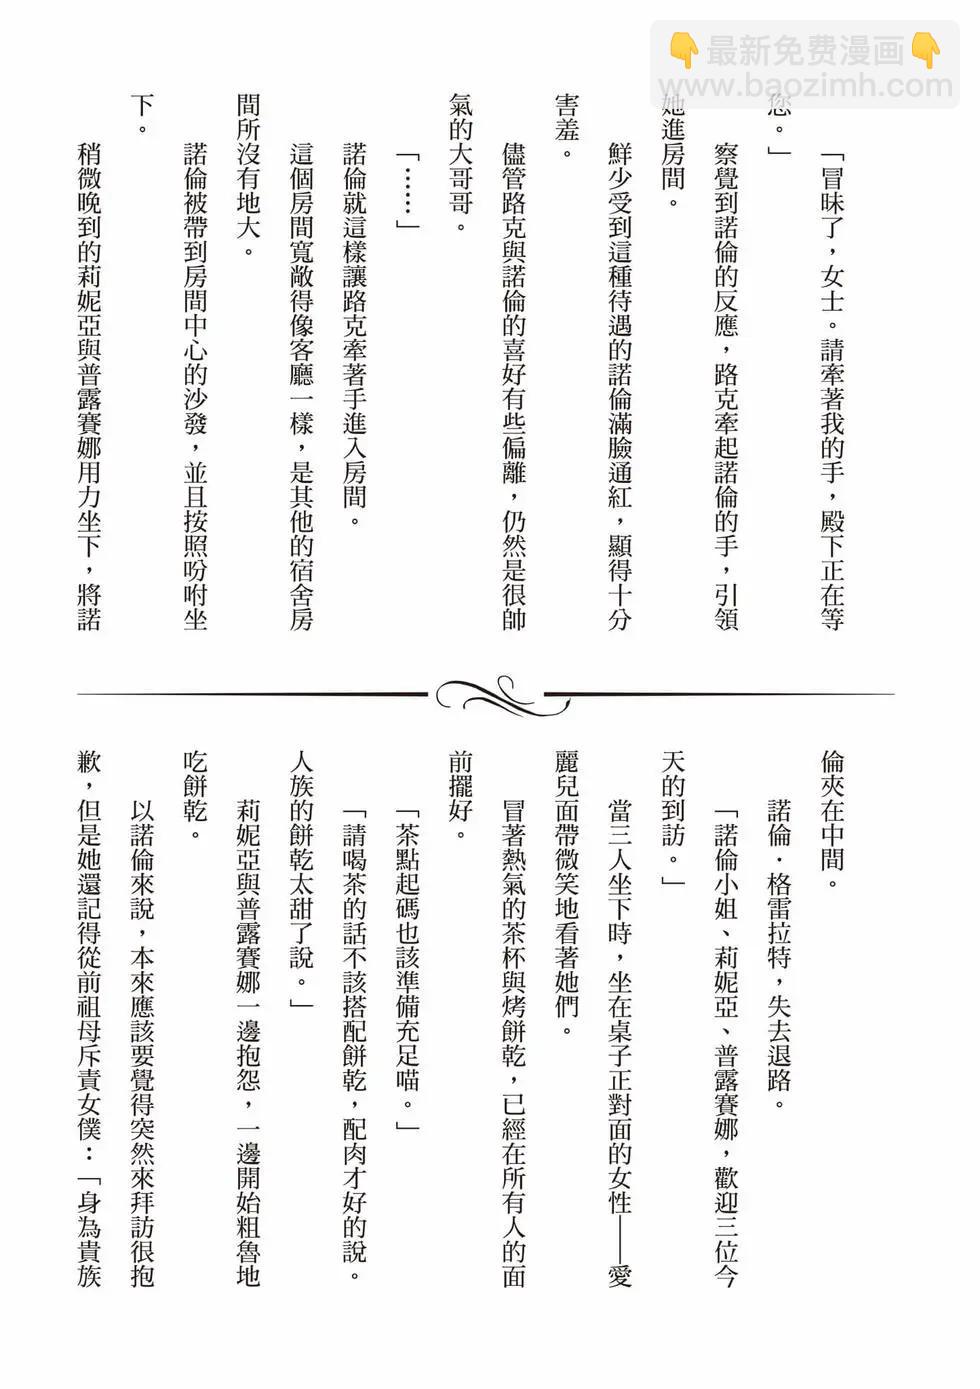 👇最新免费漫画👇
www.baozimh.com
「冒昧了，女士。請牽著我的手，殿下正在等
您。」
察覺到諾倫的反應，路克牽起諾倫的手，引領
她進房間。
鮮少受到這種待遇的諾倫滿臉通紅，顯得十分
害羞。
儘管路克與諾倫的喜好有些偏離，仍然是很帥
氣的大哥哥。
「……」
諾倫就這樣讓路克牽著手進入房間。
這個房間寬敞得像客廳一樣，是其他的宿舍房
間所沒有地大。
諾倫被帶到房間中心的沙發，並且按照吩咐坐
下。
稍微晚到的莉妮亞與普露賽娜用力坐下，將諾
倫夾在中間。
諾倫．格雷拉特，失去退路。
「諾倫小姐、莉妮亞、普露賽娜，歡迎三位今
天的到訪。」
當三人坐下時，坐在桌子正對面的女性——愛
麗兒面帶微笑地看著她們。
冒著熱氣的茶杯與烤餅乾，已經在所有人的面
前擺好。
「茶點起碼也該準備充足喵。」
「請喝茶的話不該搭配餅乾，配肉才好的說。
人族的餅乾太甜了說。」
莉妮亞與普露賽娜一邊抱怨，一邊開始粗魯地
吃餅乾。
以諾倫來說，本來應該要覺得突然來拜訪很抱
歉，但是她還記得從前祖母斥責女僕：「身為貴族